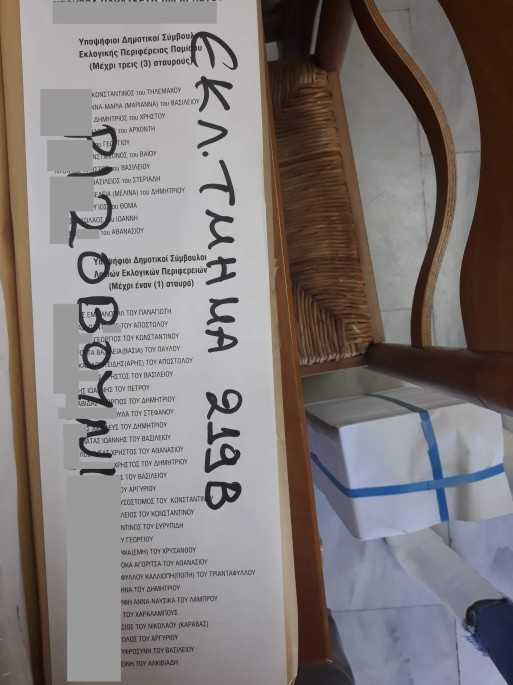 Υποψήφιοι Δημοτικοί Σύμβουλ
Εκλογικής Περιφέρειας Παμίσου
(Μέχρι τρεις (3) σταυρούς)
ΚΩΝΣΤΑΝΤΙΝΟΣ του ΤΗΛΕΜΑΧΟΥ
ΝΑ-ΜΑΡΙΑ (ΜΑΡΙΑΝΝΑ) του ΒΑΣΙΛΕΙΟΥ
ΔΗΜΗΤΡΙΟΣ του ΧΡΗΣΤΟΥ
του ΑΡΧΟΝΤΗ
ου ΓΕΩΡΓΙΟΥ
ΝΣΤΑΝΤΙΝΟΣ του ΒΑΪΟΥ
του ΒΑΣΙΛΕΙΟΥ
ΒΑΣΙΛΕΙΟΣ του ΣΤΕΡΙΑΔΗ
(ΜΕΛΙΝΑ) του ΔΗΜΗΤΡΙΟΥ
του ΘΩΜΑ
του ΙΩΑΝΝΗ
του ΑΘΑΝΑΣΙΟΥ
Υποψήφιοι Δημοτικοί Σύμβουλοι
Λοιπών Εκλογικών Περιφερειών
(Μέχρι έναν (1) σταυρό)
ΤΟΥ ΠΑΝΑΓΙΩΤΗ
ΤΟΥ ΑΠΟΣΤΟΛΟΥ
ΓΕΩΡΓΙΟΣ ΤΟΥ ΚΩΝΣΤΑΝΤΙΝΟΥ
(ΒΑΣΙΑ) ΤΟΥ ΠΑΥΛΟΥ
(ΑΡΗΣ) ΤΟΥ ΑΠΟΣΤΟΛΟΥ
ΗΣΤΟΣ ΤΟΥ ΒΑΣΙΛΕΙΟΥ
ΤΟΥ ΠΕΤΡΟΥ
ΤΟΥ ΔΗΜΗΤΡΙΟΥ
ΥΛΑ ΤΟΥ ΣΤΕΦΑΝΟΥ
ΤΟΥ ΔΗΜΗΤΡΙΟΥ
ΙΩΑΝΝΗΣ ΤΟΥ ΒΑΣΙΛΕΙΟΥ
ΧΡΗΣΤΟΣ ΤΟΥ ΑΘΑΝΑΣΙΟΥ
ΧΡΗΣΤΟΣ ΤΟΥ ΔΗΜΗΤΡΙΟΥ
Σ ΤΟΥ ΒΑΣΙΛΕΙΟΥ
ΟΥ ΑΡΓΥΡΙΟΥ
ΣΟΣΤΟΜΟΣ ΤΟΥ ΚΩΝΣΤΑΝΤΙΝ
ΛΕΙΟΣ ΤΟΥ ΚΩΝΣΤΑΝΤΙΝΟΥ
ΝΤΙΝΟΣ ΤΟΥ ΕΥΡΥΠΙΔΗ
Υ ΓΕΩΡΓΙΟΥ
ΜΑ(ΕΜΗ) ΤΟΥ ΧΡΥΣΑΝΘΟΥ
ΟΚΑ ΑΓΟΡΙΤΣΑ ΤΟΥ ΑΘΑΝΑΣΙΟΥ
ΦΥΛΛΟΥ ΚΑΛΛΙΟΠΗ(ΠΟΠΗ) ΤΟΥ ΤΡΙΑΝΤΑΦΥΛΛΟΥ
ΗΝΑ ΤΟΥ ΔΗΜΗΤΡΙΟΥ
ΑΝΝΑ-ΝΑΥΣΙΚΑ ΤΟΥ ΛΑΜΠΡΟΥ
ΤΟΥ ΧΑΡΑΛΑΜΠΟΥΣ
ΣΙΟΣ ΤΟΥ ΝΙΚΟΛΑΟΥ (ΚΑΡΑΒΑΣ)
ΟΛΟΣ ΤΟΥ ΑΡΓΥΡΙΟΥ
ΦΡΟΣΥΝΗ ΤΟΥ ΒΑΣΙΛΕΙΟΥ
ΤΟΥ ΑΛΚΙΒΙΑΔΗ
ΕΚΛ. ΤΜΗΜΑ 219Β
ΡΙΖΟΒΟΥΝΙ